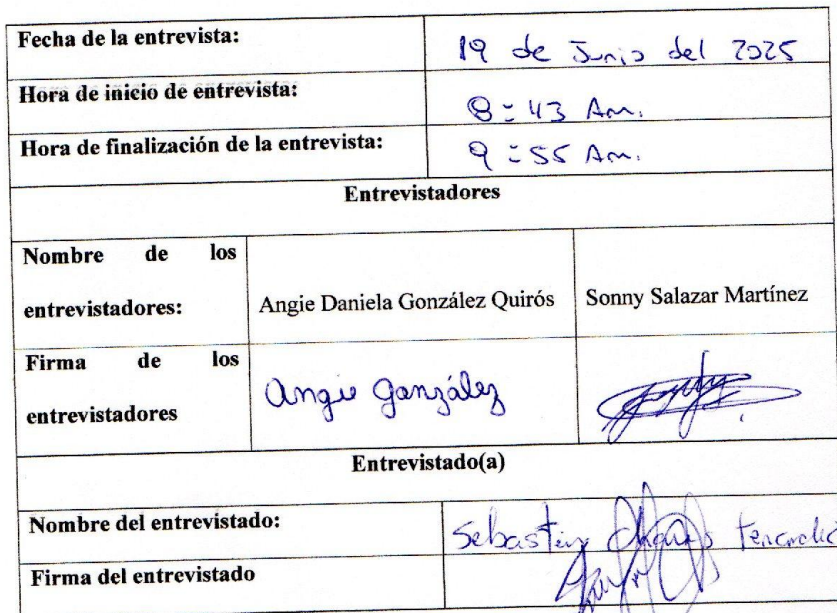 Fecha de la entrevista: 19 de Junio del 2025
Hora de inicio de entrevista: 8:43 Am.
Hora de finalización de la entrevista: 9:55 Am.
Entrevistadores
Nombre de los entrevistadores: Angie Daniela González Quirós Sonny Salazar Martínez
Firma de los entrevistadores Angie González
Entrevistado(a)
Nombre del entrevistado: Sebastian
Firma del entrevistado